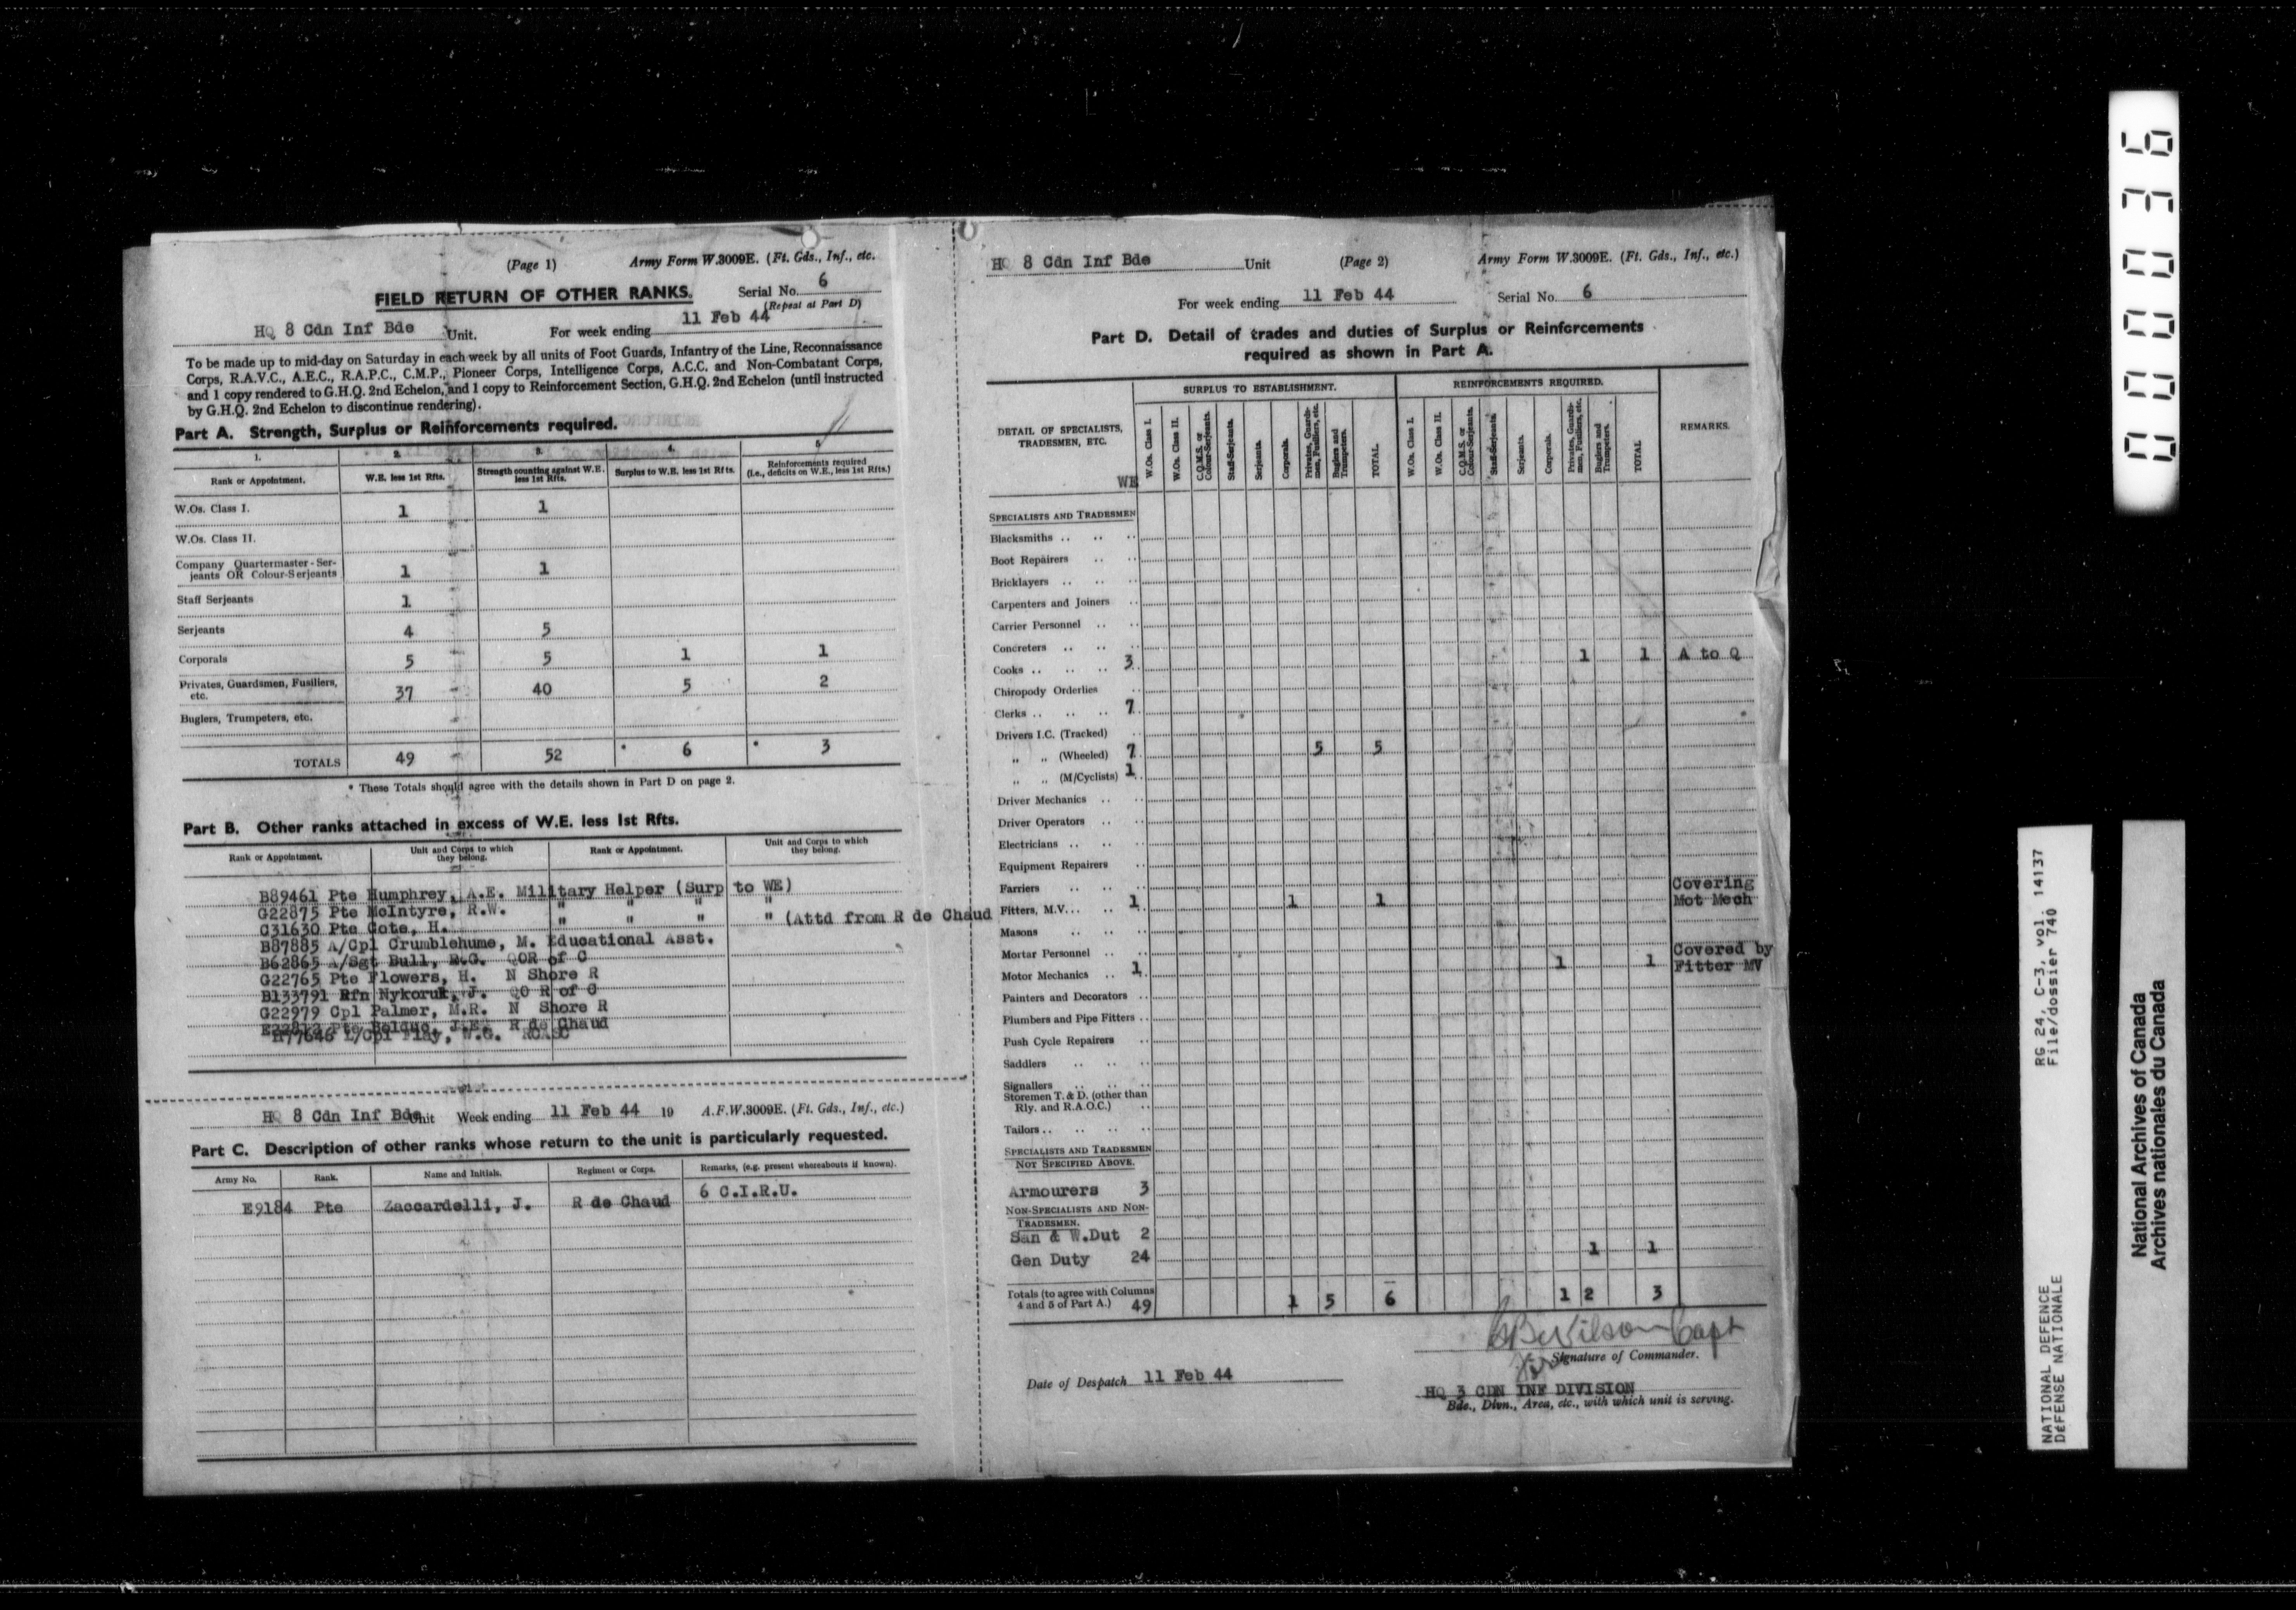 (Page 1) Army Form W.3009E. (Ft. Gds., Inf., etc.
FIELD RETURN OF OTHER RANKS. Serial No. 6
(Repeat at Part D)
HQ 8 Cdn Inf Bde Unit. For week ending 11 Feb 44
To be made up to mid-day on Saturday in each week by all units of Foot Guards, Infantry of the Line, Reconnaissance
Corps, R.A.V.C., A.E.C., R.A.P.C., C.M.P., Pioneer Corps, Intelligence Corps, A.C.C. and Non-Combatant Corps,
and 1 copy rendered to G.H.Q. 2nd Echelon, and 1 copy to Reinforcement Section, G.H.Q. 2nd Echelon (until instructed
by G.H.Q. 2nd Echelon to discontinue rendering).
Part A. Strength, Surplus or Reinforcements required.
1. 2. 3. 4. 5
Rank or Appointment. W.E. less 1st Rfts. Strength counting against W.E. less 1st Rfts. Surplus to W.E. less 1st Rfts. Reinforcements required (i.e., deficits on W.E., less 1st Rfts.)
W.Os. Class I. 1 1
W.Os. Class II.
Company Quartermaster-Ser-
jeants OR Colour-Serjeants 1 1
Staff Serjeants 1
Serjeants 4 5
Corporals 5 5 1 1
Privates, Guardsmen, Fusiliers,
etc. 37 40 5 2
Buglers, Trumpeters, etc.
TOTALS 49 52 * 6 * 3
* These Totals should agree with the details shown in Part D on page 2.
Part B. Other ranks attached in excess of W.E. less 1st Rfts.
Rank or Appointment. Unit and Corps to which they belong. Rank or Appointment. Unit and Corps to which they belong.
B89461 Pte Humphrey, A.E. Military Helper (Surp to WE)
G22875 Pte McIntyre, R.W. " " " "
C31630 Pte Cote, H. " " " " (Attd from R de Chaud
B87885 A/Cpl Crumblehume, M. Educational Asst.
B62865 A/Sgt Bull, QOR of C
G22765 Pte Flowers, H. N Shore R
B133791 Rfn Nykoruk, J. QO R of C
G22979 Cpl Palmer, M.R. N Shore R
Pte Bolduc, J.E. R de Chaud
L/Cpl W.G. RCASC
HQ 8 Cdn Inf Bde Unit Week ending 11 Feb 44 19 A.F.W.3009E. (Ft. Gds., Inf., etc.)
Part C. Description of other ranks whose return to the unit is particularly requested.
Army No. Rank. Name and Initials. Regiment or Corps. Remarks, (e.g. present whereabouts if known).
E9184 Pte Zaccardelli, J. R de Chaud 6 C.I.R.U.
HQ 8 Cdn Inf Bde Unit (Page 2) Army Form W.3009E. (Ft. Gds., Inf., etc.)
For week ending 11 Feb 44 Serial No. 6
Part D. Detail of trades and duties of Surplus or Reinforcements
required as shown in Part A.
DETAIL OF SPECIALISTS, TRADESMEN, ETC. SURPLUS TO ESTABLISHMENT. REINFORCEMENTS REQUIRED. REMARKS.
WE W.Os. Class I. W.Os. Class II. C.Q.M.S. or Colour-Serjeants. Staff-Serjeants. Serjeants. Corporals. Privates, Guards-men, Fusiliers, etc. Buglers and Trumpeters. TOTAL. W.Os. Class I. W.Os. Class II. C.Q.M.S. or Colour-Serjeants. Staff-Serjeants. Serjeants. Corporals. Privates, Guards-men, Fusiliers, etc. Buglers and Trumpeters. TOTAL
SPECIALISTS AND TRADESMEN
Blacksmiths
Boot Repairers
Bricklayers
Carpenters and Joiners
Carrier Personnel
Concreters
Cooks 3 1 1 A to Q
Chiropody Orderlies
Clerks 7
Drivers I.C. (Tracked)
" " (Wheeled) 7 5 5
" " (M/Cyclists) 1
Driver Mechanics
Driver Operators
Electricians
Equipment Repairers
Farriers
Fitters, M.V. 1 1 1 Covering Mot Mech
Masons
Mortar Personnel
Motor Mechanics 1 1 1 Covered by Fitter MV
Painters and Decorators
Plumbers and Pipe Fitters
Push Cycle Repairers
Saddlers
Signallers
Storemen T. & D. (other than
Rly. and R.A.O.C.)
Tailors
SPECIALISTS AND TRADESMEN
NOT SPECIFIED ABOVE.
Armourers 3
NON-SPECIALISTS AND NON-
TRADESMEN.
San & W.Dut 2
Gen Duty 24 1 1
Totals (to agree with Columns
4 and 5 of Part A.) 49 1 5 6 1 2 3
Wilson Capt
Signature of Commander.
Date of Despatch 11 Feb 44
HQ 3 CDN INF DIVISION
Bde., Divn., Area, etc., with which unit is serving.
000036
NATIONAL DEFENCE RG 24, C-3, vol. 14137
DÉFENSE NATIONALE File/dossier 740
National Archives of Canada
Archives nationales du Canada